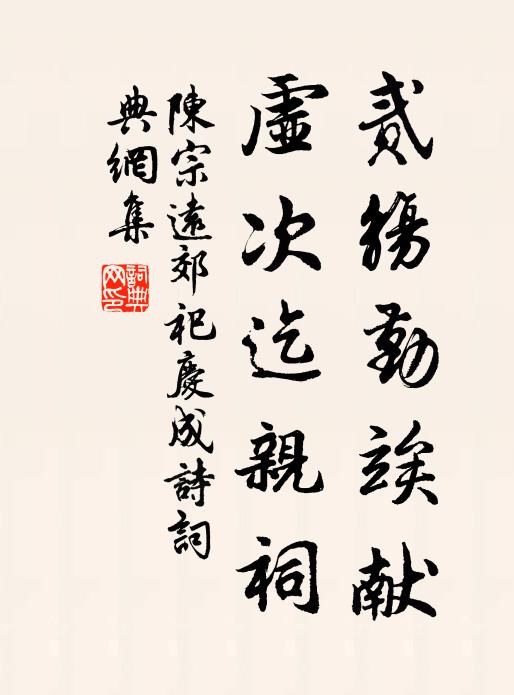 貳觴勤俟献
虛次迄親祠
陳宗遠郊祀慶成詩詞
典網集
詞典网印